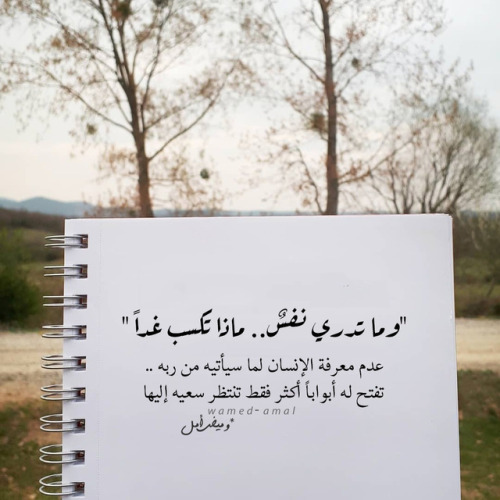 "وما تدري نفسٌ.. ماذا تكسب غداً"
عدم معرفة الإنسان لما سيأتيه من ربه ..
تفتح له أبواباً أكثر فقط تنتظر سعيه إليها
wamed-amal
*وميض أمل